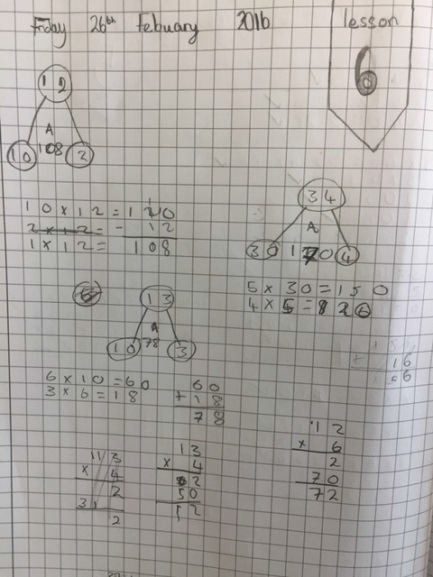 Friday 26th Febuary 2016 lesson
6
12
A
10 108 2
10 x 12 = 120
2 x 12 = - 12
1 x 12 = 108
34
A
30 170 4
5 x 30 = 150
4 x 5 = 20
13
A
10 78 3
6 x 10 = 60
3 x 6 = 18
60
+ 18
78
13
x 4
2
3
2
13
x 4
2
50
52
12
x 6
2
70
72